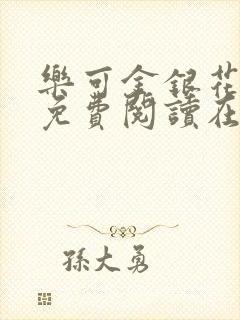 樂可金銀花
免費閱讀在
孫大勇